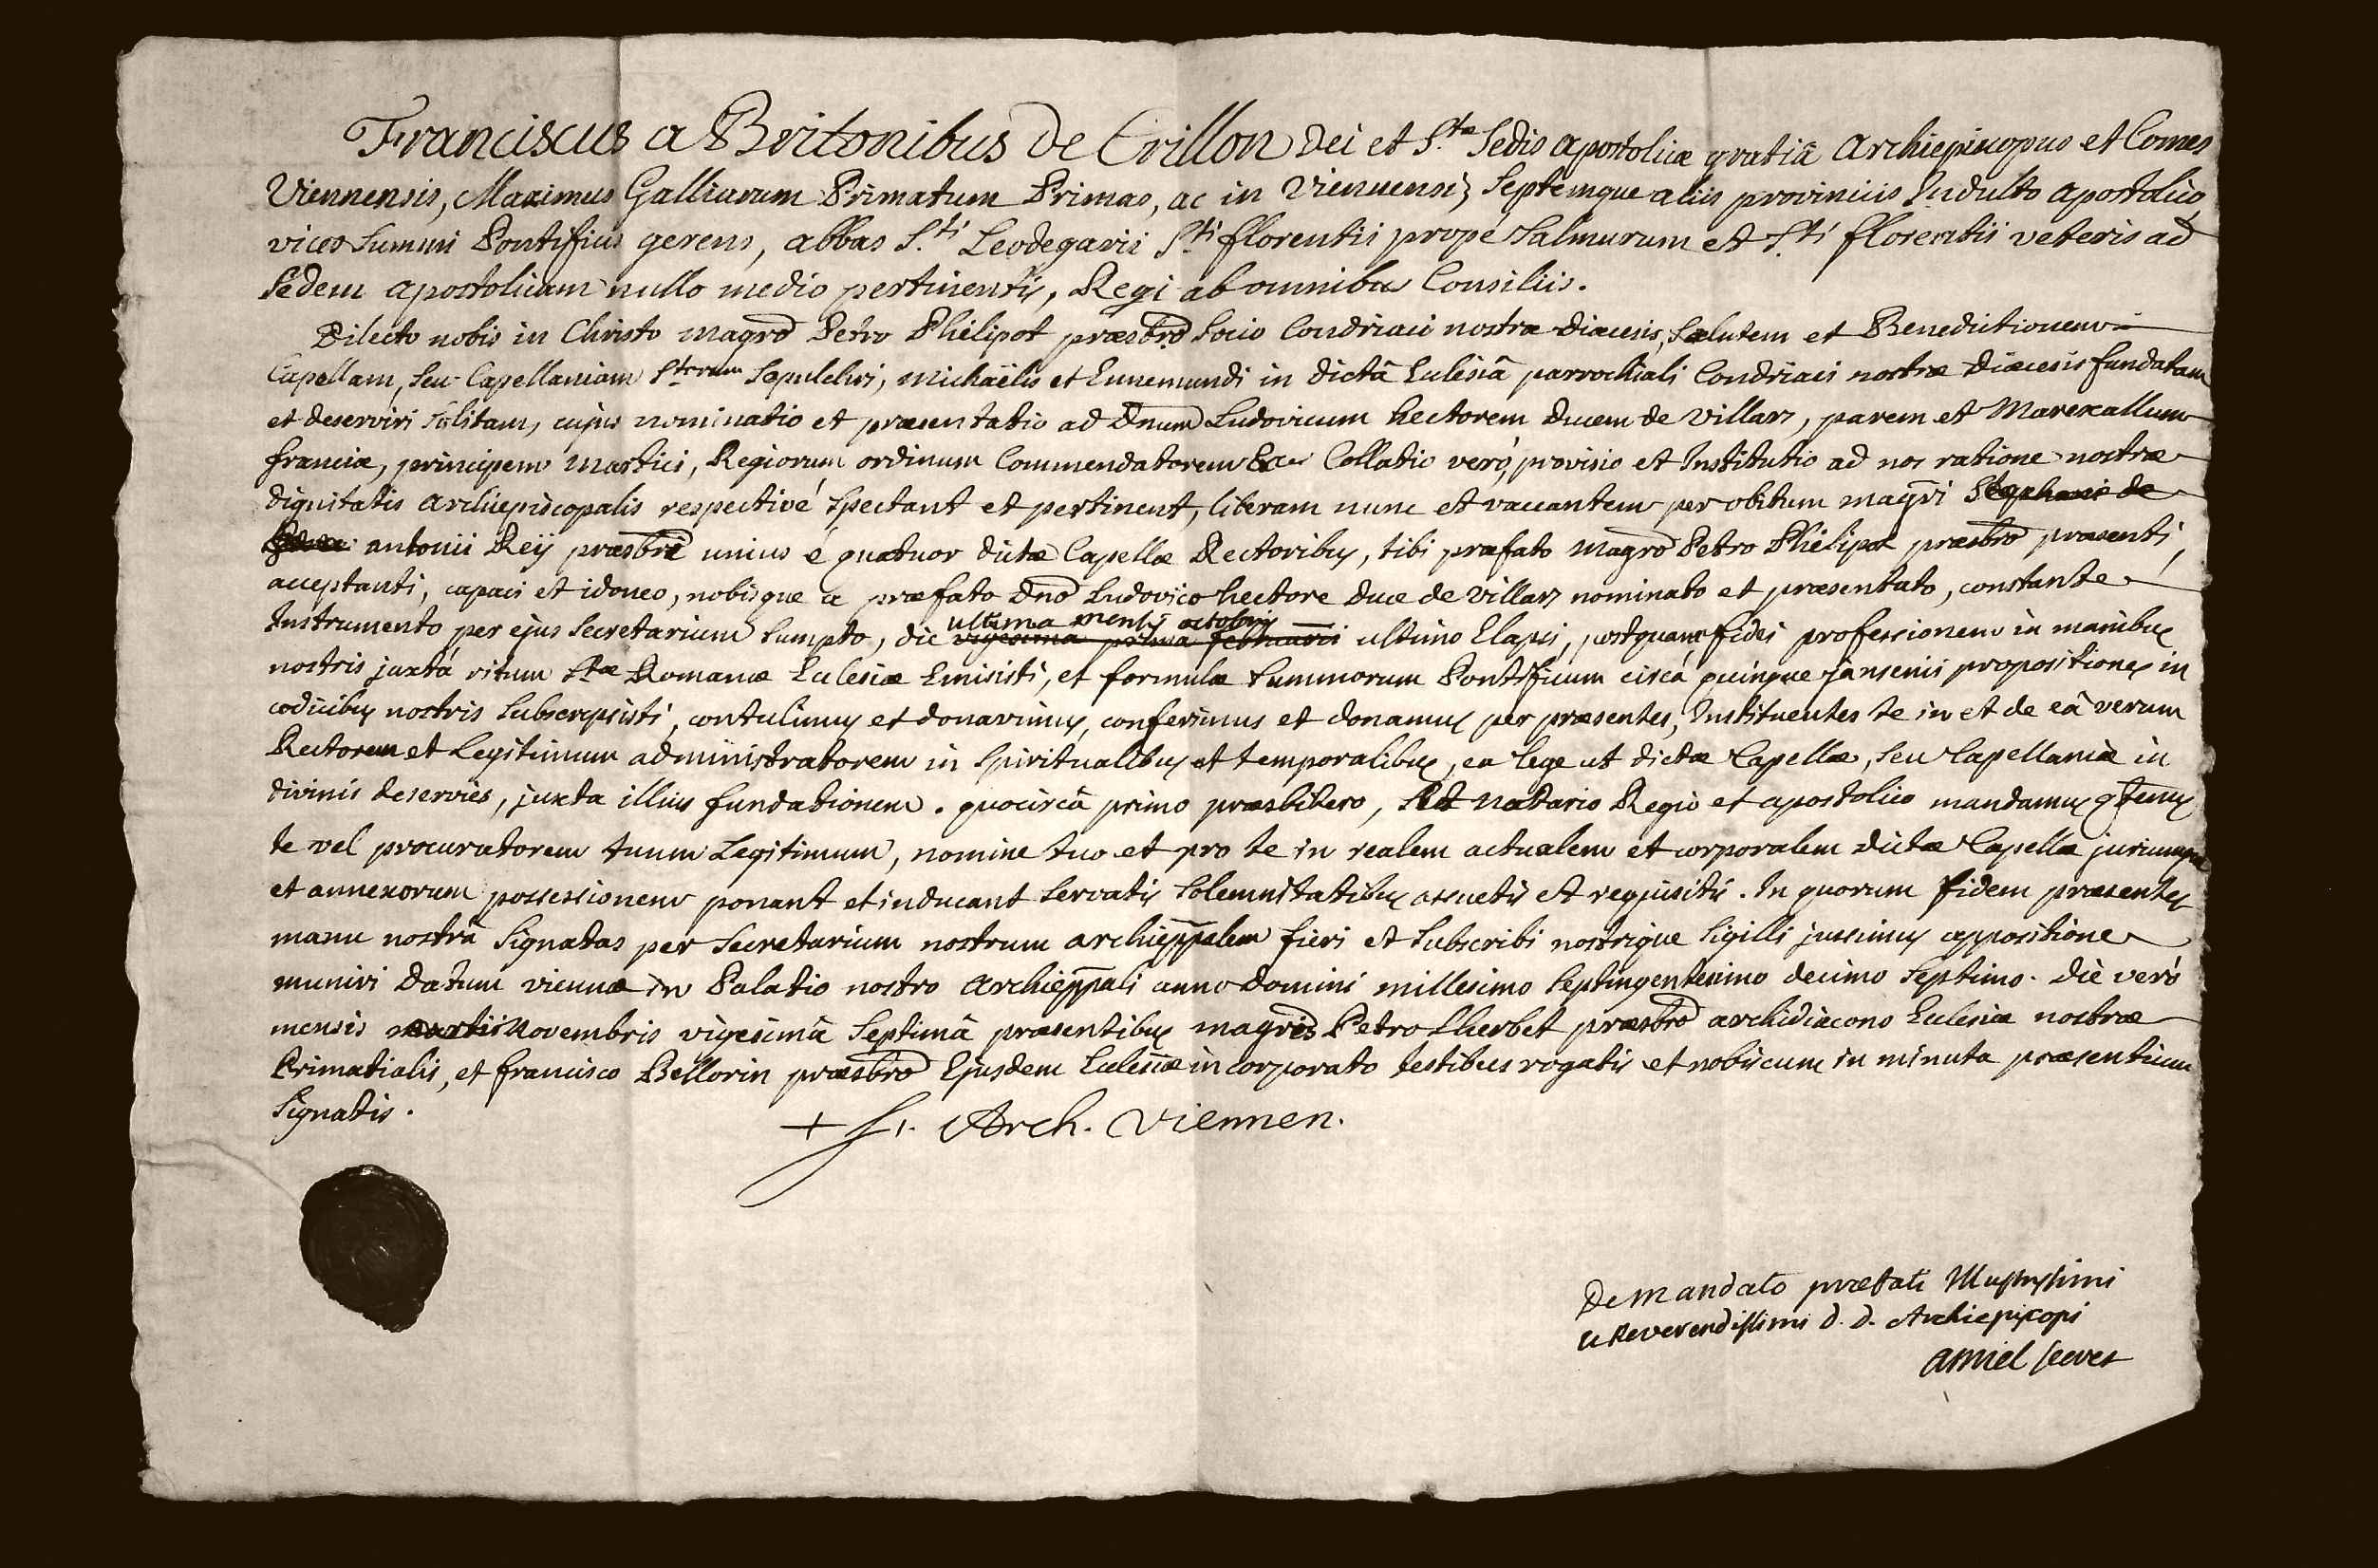 Franciscus a Britonibus de Crillon Dei et S.tæ Sedis apostolicæ gratiâ Archiepiscopus et Comes
Viennensis, Maximus Galliarum Primatum Primas, ac in Viennensi, Septemque aliis provinciis Indulto apostolico
vices Summi Pontificis gerens, abbas S.ti Leodegarii S.ti florentii propé Salmurum et S.ti florentii veteris ad
Sedem apostolicam nullo medio pertinentis, Regi ab omnibus Consiliis.
Dilecto nobis in Christo magro Petro Phélipot præsbro Socio Condriaci nostræ diæcesis, Salutem et Benedictionem
Capellam, Seu Capellaniam Storum Sepulchri, Michaëlis et Ennemundi in dictâ Eclesiâ parrochiali Condriaci nostræ diæcesis fundatam
et deserviri solitam, cujus nominatio et præsentatio ad Dnum Ludovicum hectorem ducem de villars, parem et Marexallum
franciæ, principem Martici, Regiorum ordinum Commendatorem &c Collatio veró, provisio et Institutio ad nos ratione nostræ
dignitatis archiepiscopalis respectivé spectant et pertinent, liberam nunc et vaccantem per obitum magri Stephani de
antonii Reij præsbri unius é quatuor dictæ Capellæ Rectoribus, tibi præfato magro Petro Phélipot præsbro præsenti,
acceptanti, capaci et idoneo, nobisque a præfato dno Ludovico hectore duce de villars nominato et præsentato, constante
ultima mensis octobris
Instrumento per ejus Secretarium Sumpto, die vigesima prima februarii ultimo Elapsi, postquam fidei professionem in manibus
nostris juxtá ritum Stæ Romanæ Eclesiæ Emisisti, et formulæ Summorum Pontificum circá quinque jansenii propositiones in
codicibus nostris Subscripsisti, contulimus et donavimus, conferimus et donamus per præsentes, Instituentes te in et de eâ verum
Rectorem et Legitimum administratorem in Spiritualibus et temporalibus, ea lege ut dictæ Capellæ, Seu Capellaniæ in
divinis deservies, juxta illius fundationem. quocircâ primo præsbitero, aut notario Regio et apostolico mandamus qtenus
te vel procuratorem tuum Legitimum, nomine tuo et pro te in realem actualem et corporalem dictæ Capellæ juriumque
et annexorum possessionem ponant et inducant Servatis Solemnitatibus assuetis et requisitis. In quorum fidem præsentes
manu nostrâ Signatas per Secretarium nostrum archieppalem fieri et Subscribi nostrique Sigilli jussimus appositione
muniri Datum viennæ in Palatio nostro Archieppali anno domini millesimo Septingentesimo decimo Septimo. Die veró
mensis martii novembris vigesimâ Septimâ præsentibus magris Petro Lherbet præsbro archidiacono Eclesiæ nostræ
Primatialis, et francisco Bellorin præsbro Ejusdem Eclesiæ incorporato testibus rogatis et nobiscum in minuta præsentium
Signatis.
+ fr. Arch. Viennen.
De mandato præfati Illustrissimi
ac Reverendissimi d. d. Archiepiscopi
amiel secret